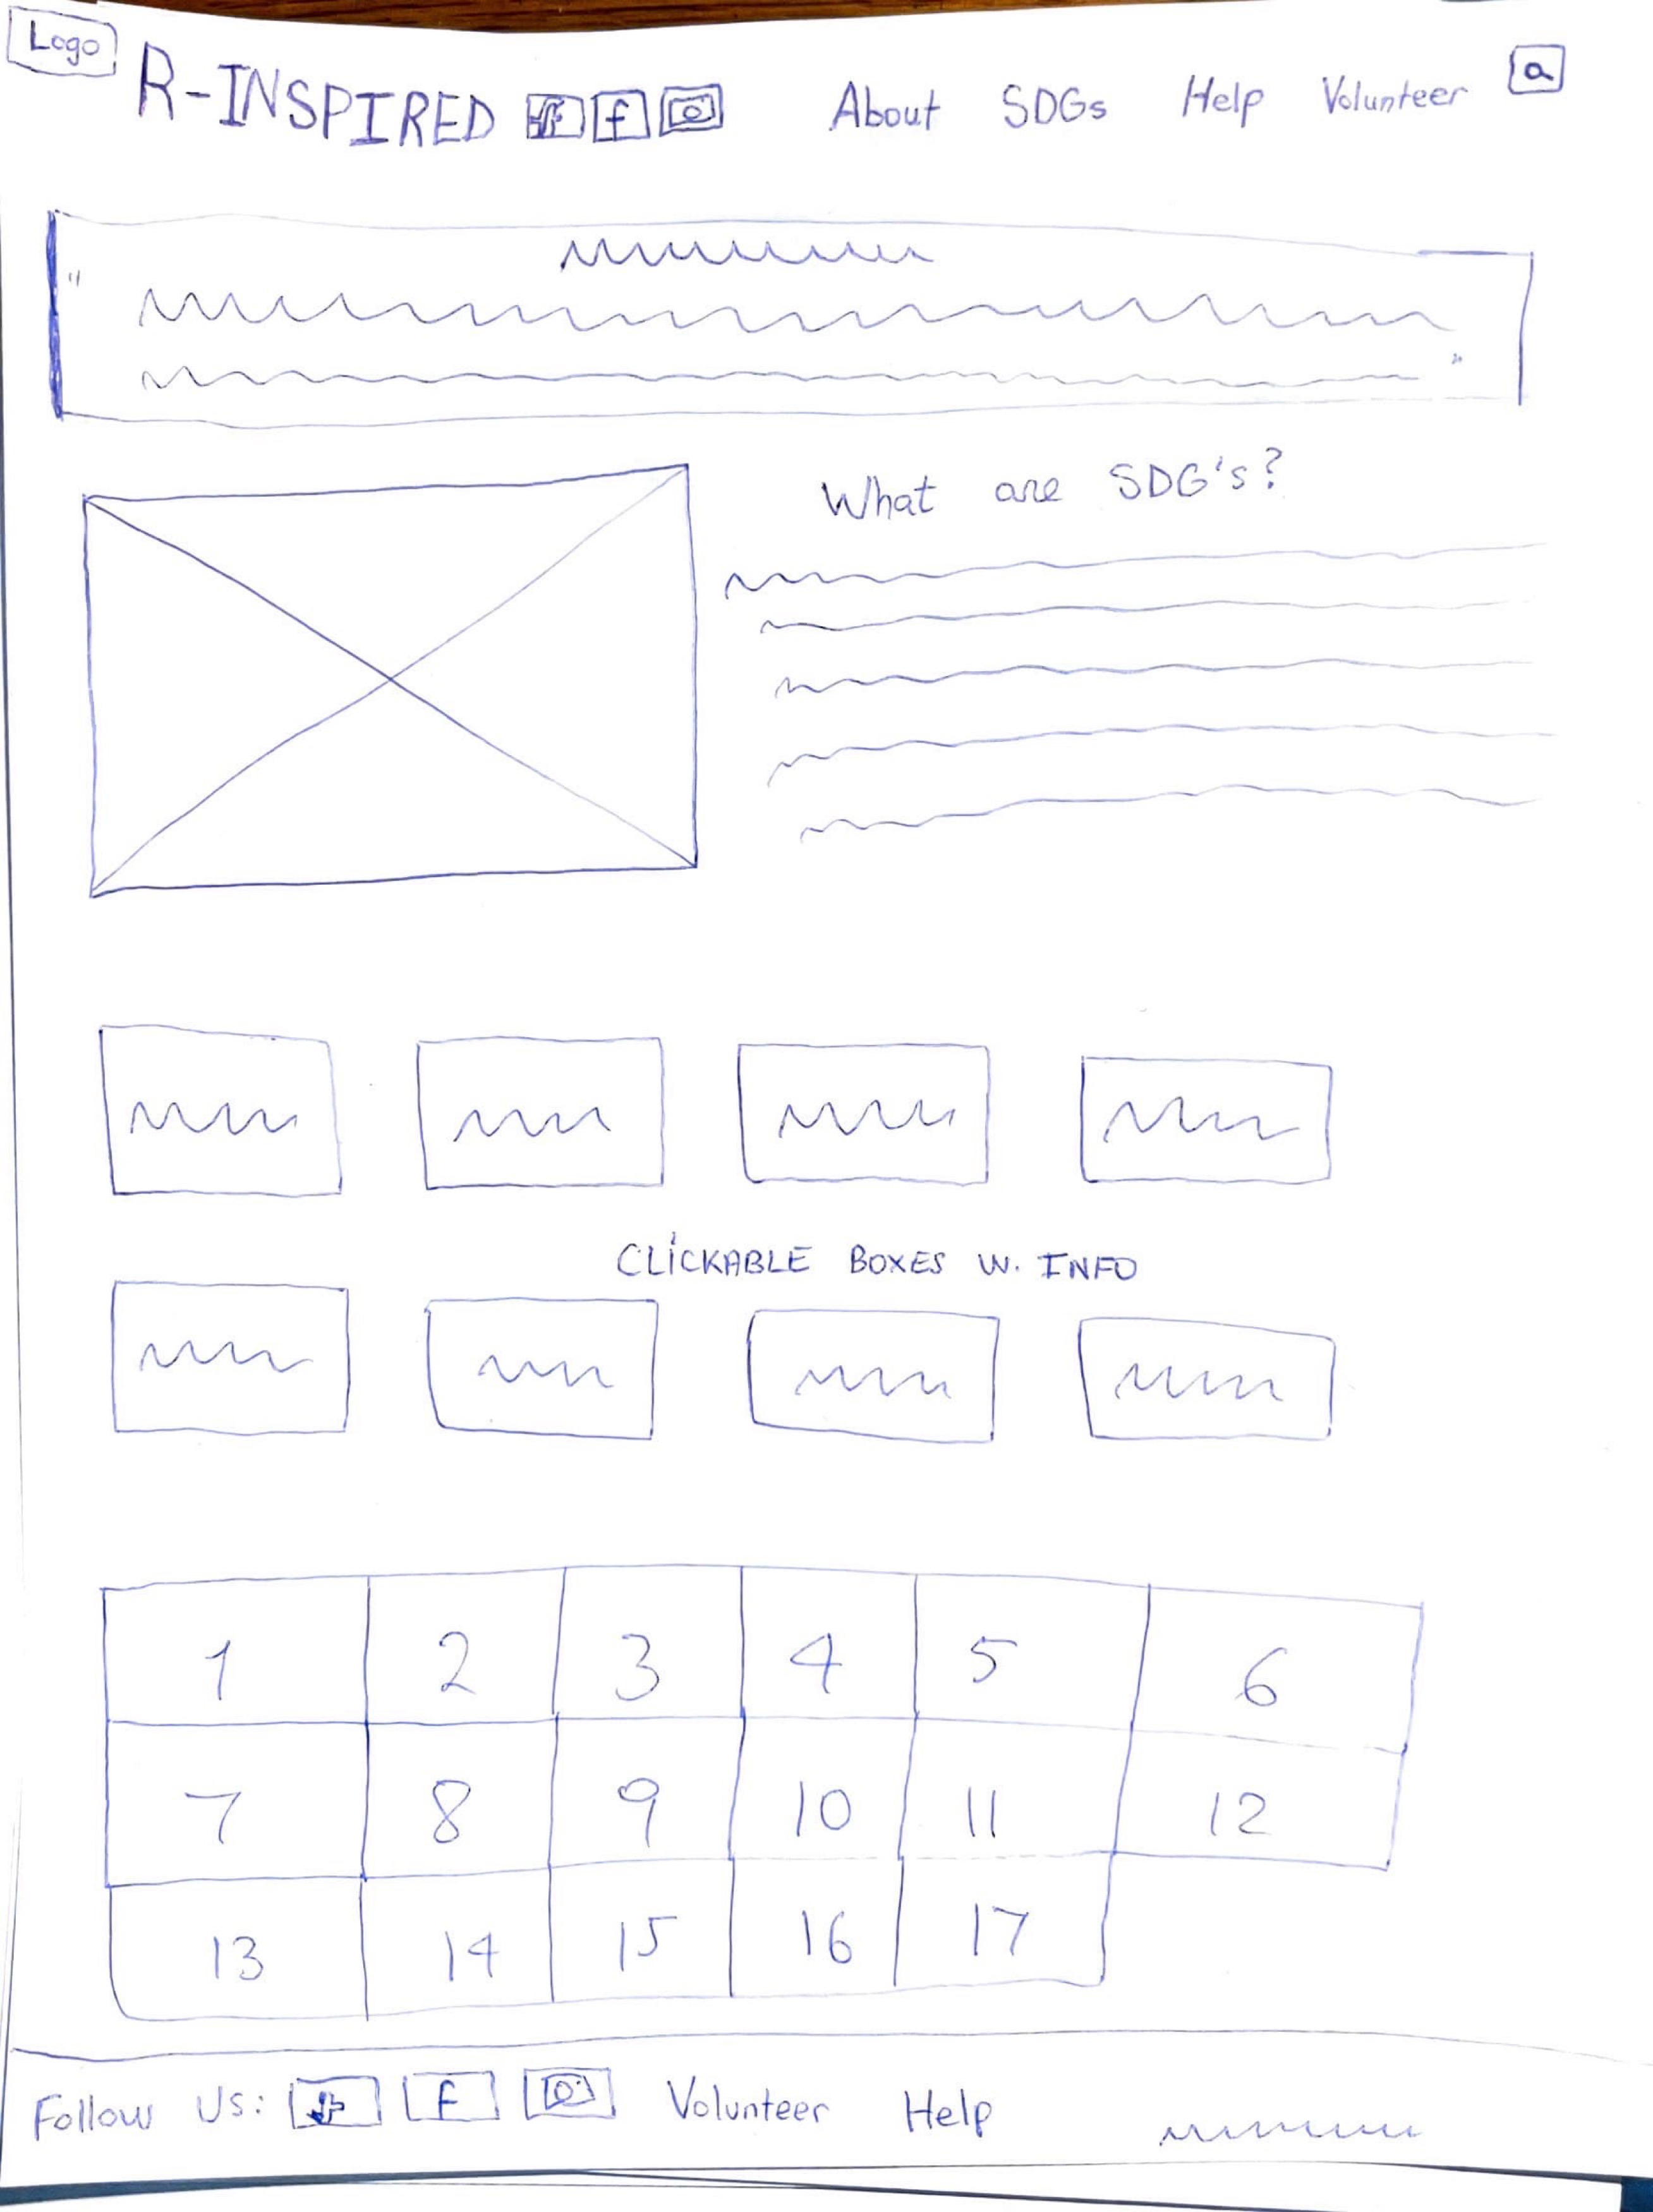 Logo
R-INSPIRED f About SDGs Help Volunteer
"
"
What are SDG's?
CLICKABLE BOXES W. INFO
1 2 3 4 5 6
7 8 9 10 11 12
13 14 15 16 17
Follow Us: f Volunteer Help